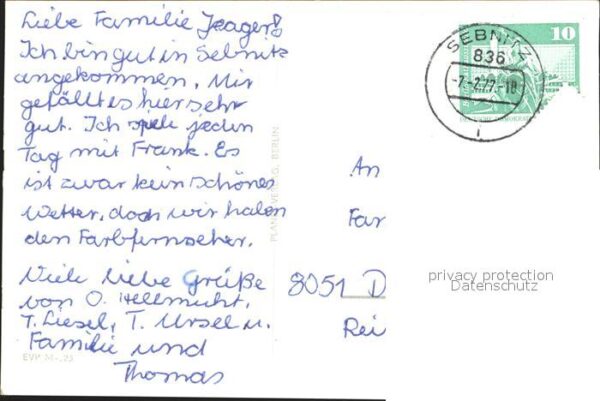 Liebe Familie Jeager!
Ich bin gut in Sebnitz
angekommen. Mir
gefällt es hier sehr
gut. Ich spiele jeden
Tag mit Frank. Es
ist zwar kein schönes
Wetter, doch wir haben
den Farbfernseher.
Viele liebe Grüße
von O. Hellmuht,
T. Liesel, T. Ursel u.
Familie und
Thomas
EVP M
PLANET-VERLAG, BERLIN
SEBNITZ
836
-7.-2.77.-18
10
An
Fa
8051 D
Rei
privacy protection
Datenschutz